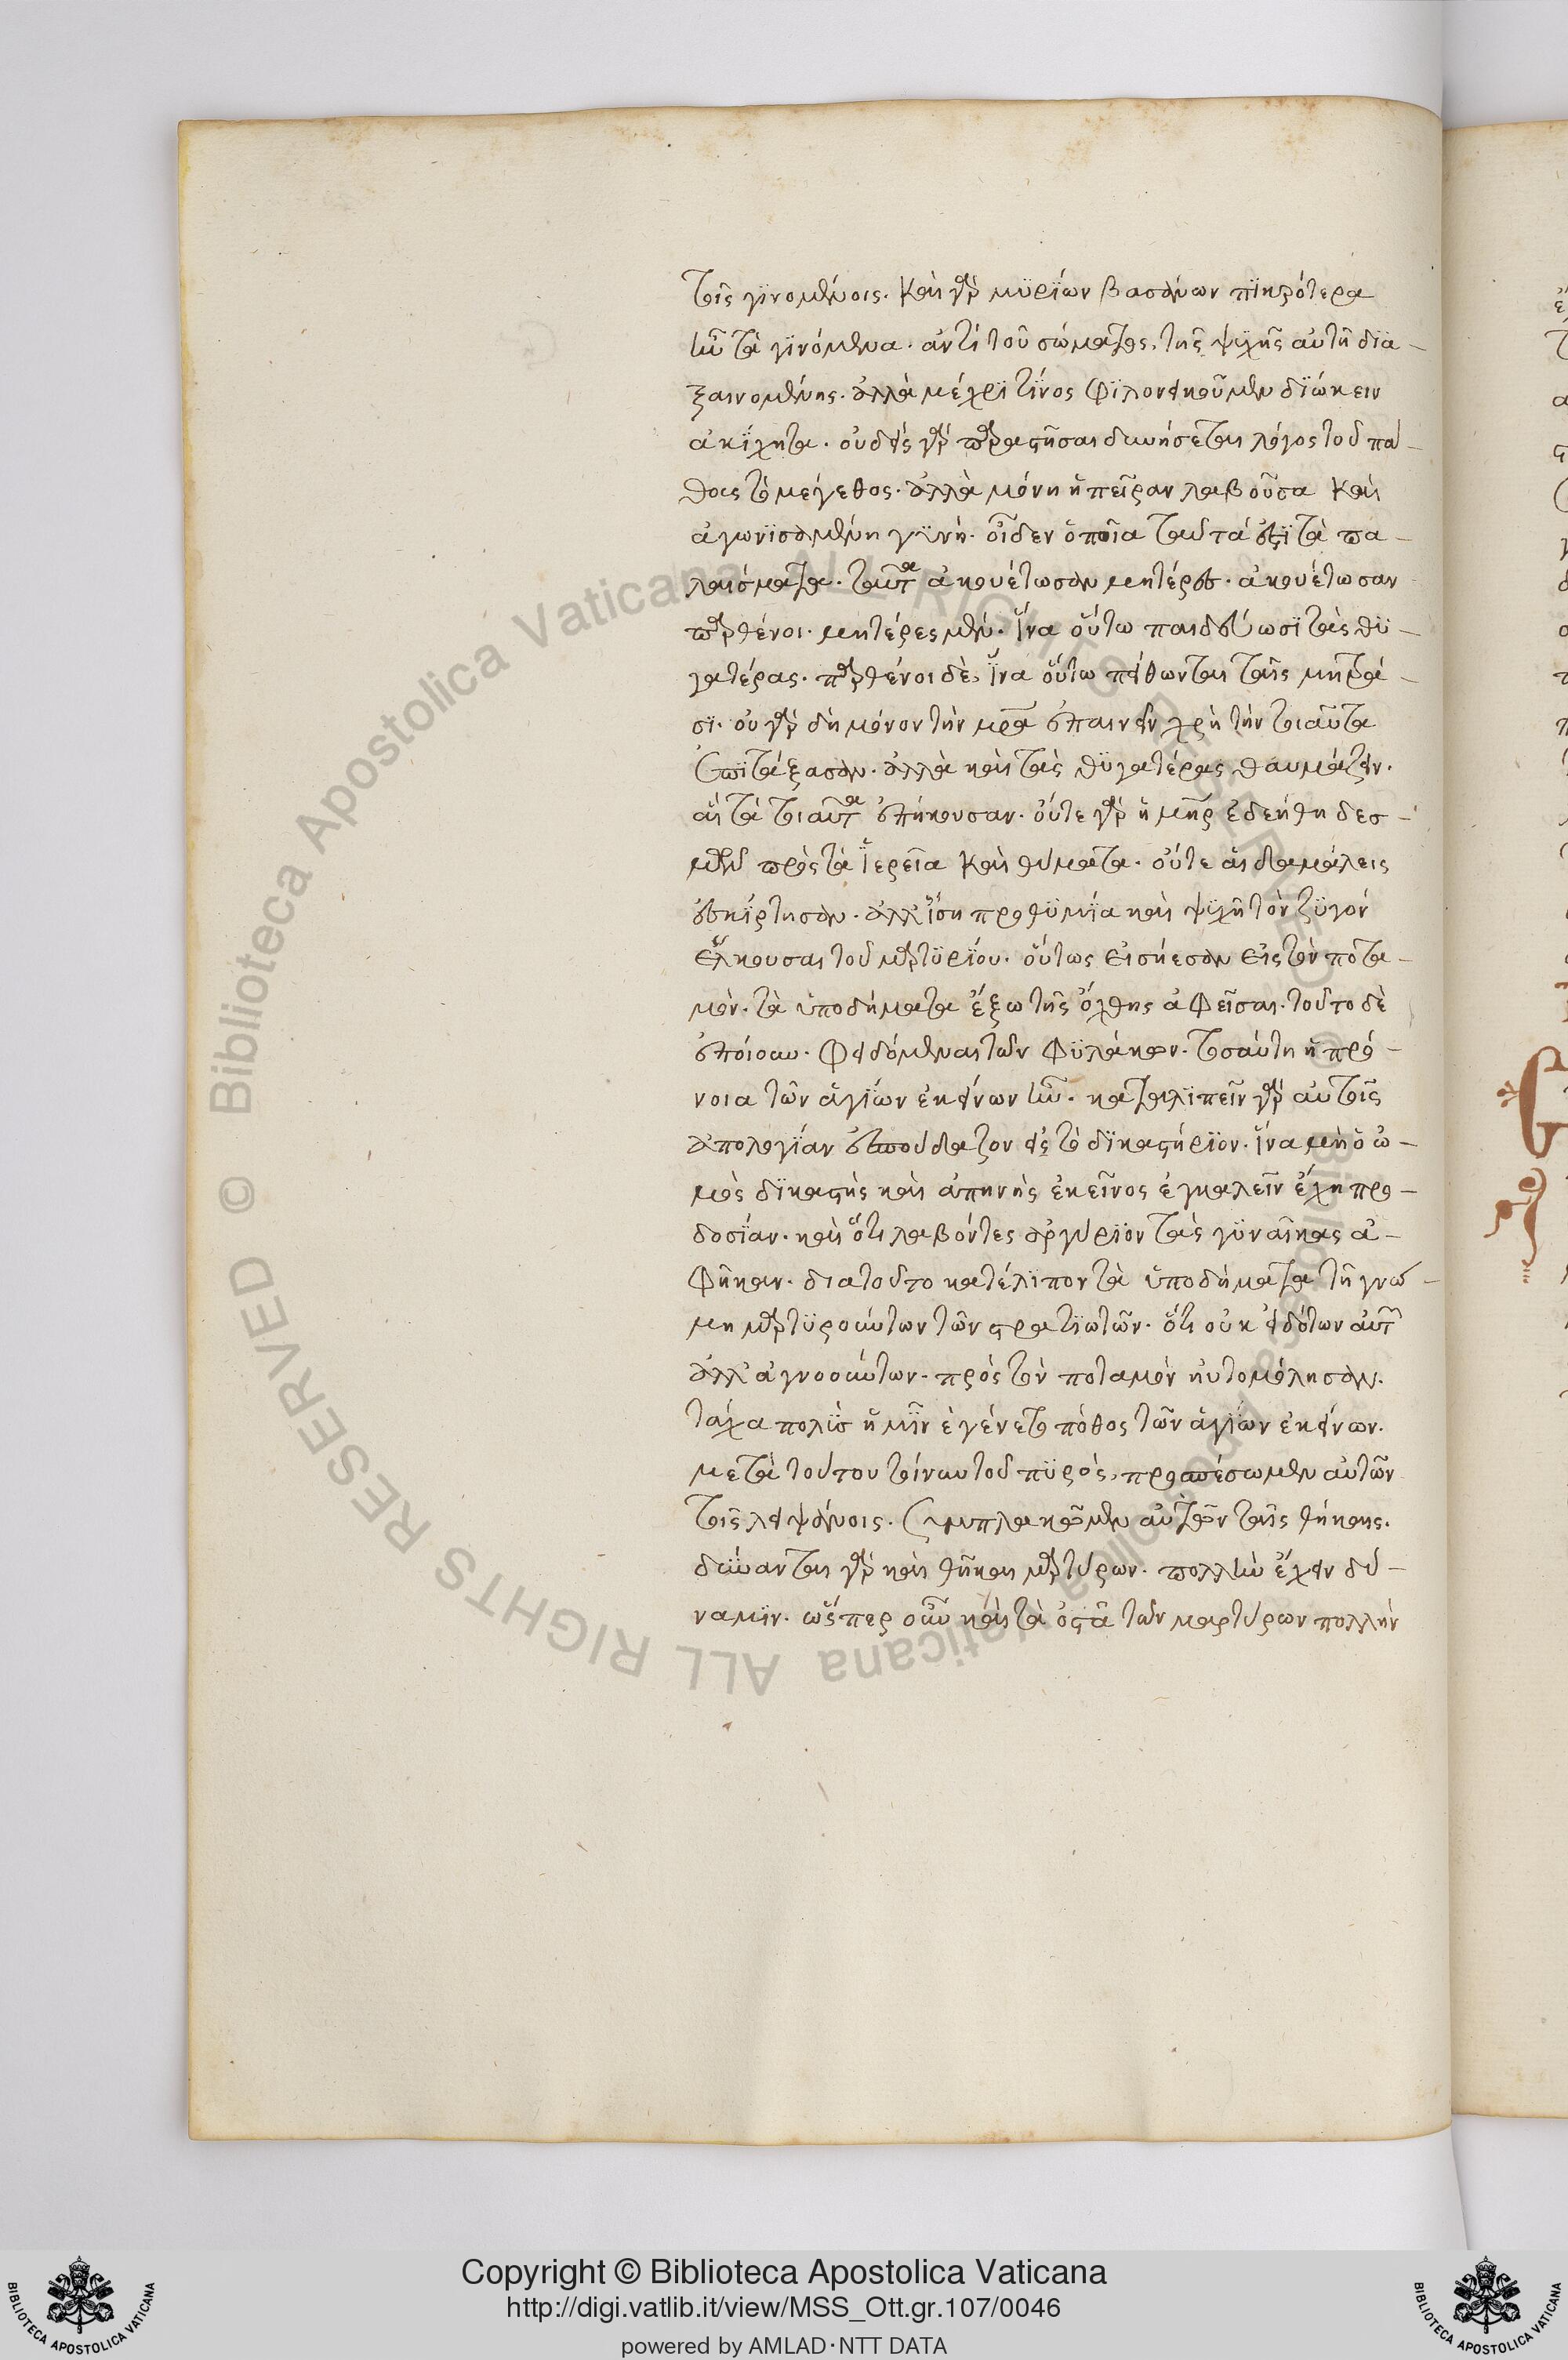 τοῖς γϊνομένοις. Καὶ γὰρ μϋρίων βασάνων πϊκρότερα
ἦν τὰ γϊνόμενα. ἀντὶ τοῦ σώματος, τῆς ψϋχῆς αὐτῆ δϊα–
ξαινομένης. ἀλλὰ μέχρϊ τίνος φϊλονεικοῦμεν δϊώκειν
ἀκίχητα. οὐδεὶς γὰρ παραστῆσαι δυνήσεται λόγος τοῦ πά–
θους τὸ μέγεθος. ἀλλὰ μόνη ἡ πεῖραν λαβοῦσα Καὶ
ἀγωνϊσαμένη γϋνή. οἶδεν ὁποῖα ταῦτά ἐστϊ τὰ πα–
λαίσματα. ταῦτα ἀκουέτωσαν μητέρες. ἀκουέτωσαν
παρθένοι. μητέρες μέν. ἵνα οὕτω παιδεύωσϊ τὰς θϋ–
γατέρας. παρθένοι δὲ, ἵνα οὕτω πείθωνται ταῖς μητρά–
σϊ. οὐ γὰρ δὴ μόνον τὴν μρα ἐπαινεῖν χρὴ τὴν τοιαῦτα
ἐπιτάξασαν. ἀλλὰ καὶ τὰς θϋγατέρας θαυμάζειν.
αἳ τὰ τοιαῦτα ἐπήκουσαν. οὔτε γὰρ ἡ μηρ ἐδεήθη δεσ–
μῶν πρὸς τὰ ἱερεῖα Καὶ θύματα. οὔτε αἱ δαμάλεις
ἐσκίρτησαν. ἀλλ' ἴση προθϋμία καὶ ψϋχῆ τὸν ζϋγὸν
εἵλκουσαι τοῦ μαρτϋρίου. οὕτως εἰσήεσαν εἰς τὸν ποτα–
μόν. τὰ ὑποδήματα ἔξω τῆς ὄχθης ἀφεῖσαι. τοῦτο δὲ
ἐποίουν. φειδόμεναι τῶν φϋλάκων. τοσαύτη ἡ πρό–
νοια τῶν ἁγίων ἐκείνων ἦν. καταλϊπεῖν γὰρ αὐτοῖς
ἀπολογίαν ἐσπούδαζον εἰς τὸ δϊκαστήρϊον. ἵνα μὴ ὁ ὠ–
μὸς δϊκαστὴς καὶ ἀπηνὴς ἐκεῖνος ἐγκαλεῖν ἔχη προ–
δοσίαν. καὶ ὅτι λαβόντες ἀργύρϊον τὰς γϋναῖκας ἀ–
φῆκαν. διατοῦτο κατέλϊπον τὰ ὑποδήματα τῆ γνώ–
μη μαρτϋροῦντων τῶν στρατϊωτῶν. ὅτι οὐκ εἰδότων αὐτ
ἀλλ' ἀγνοούντων. πρὸς τὸν ποταμὸν ηὐτομόλησαν.
τάχα πολὺς ἡμῖν ἐγένετο πόθος τῶν ἁγίων ἐκείνων.
μετὰ τούτου τοίνυν τοῦ πϋρός, προσπέσωμεν αὐτῶν
τοῖς λειψάνοις. Συμπλακῶμεν αὐτῶν ταῖς θήκαις.
δύνανται γὰρ καὶ θῆκαι μαρτύρων. πολλὴν ἔχειν δύ–
ναμϊν. ὥσπερ οὖν καὶ τὰ ὀστᾶ τῶν μαρτύρων πολλὴν
Copyright © Biblioteca Apostolica Vaticana
http://digi.vatlib.it/view/MSS_Ott.gr.107/0046
powered by AMLAD·NTT DATA